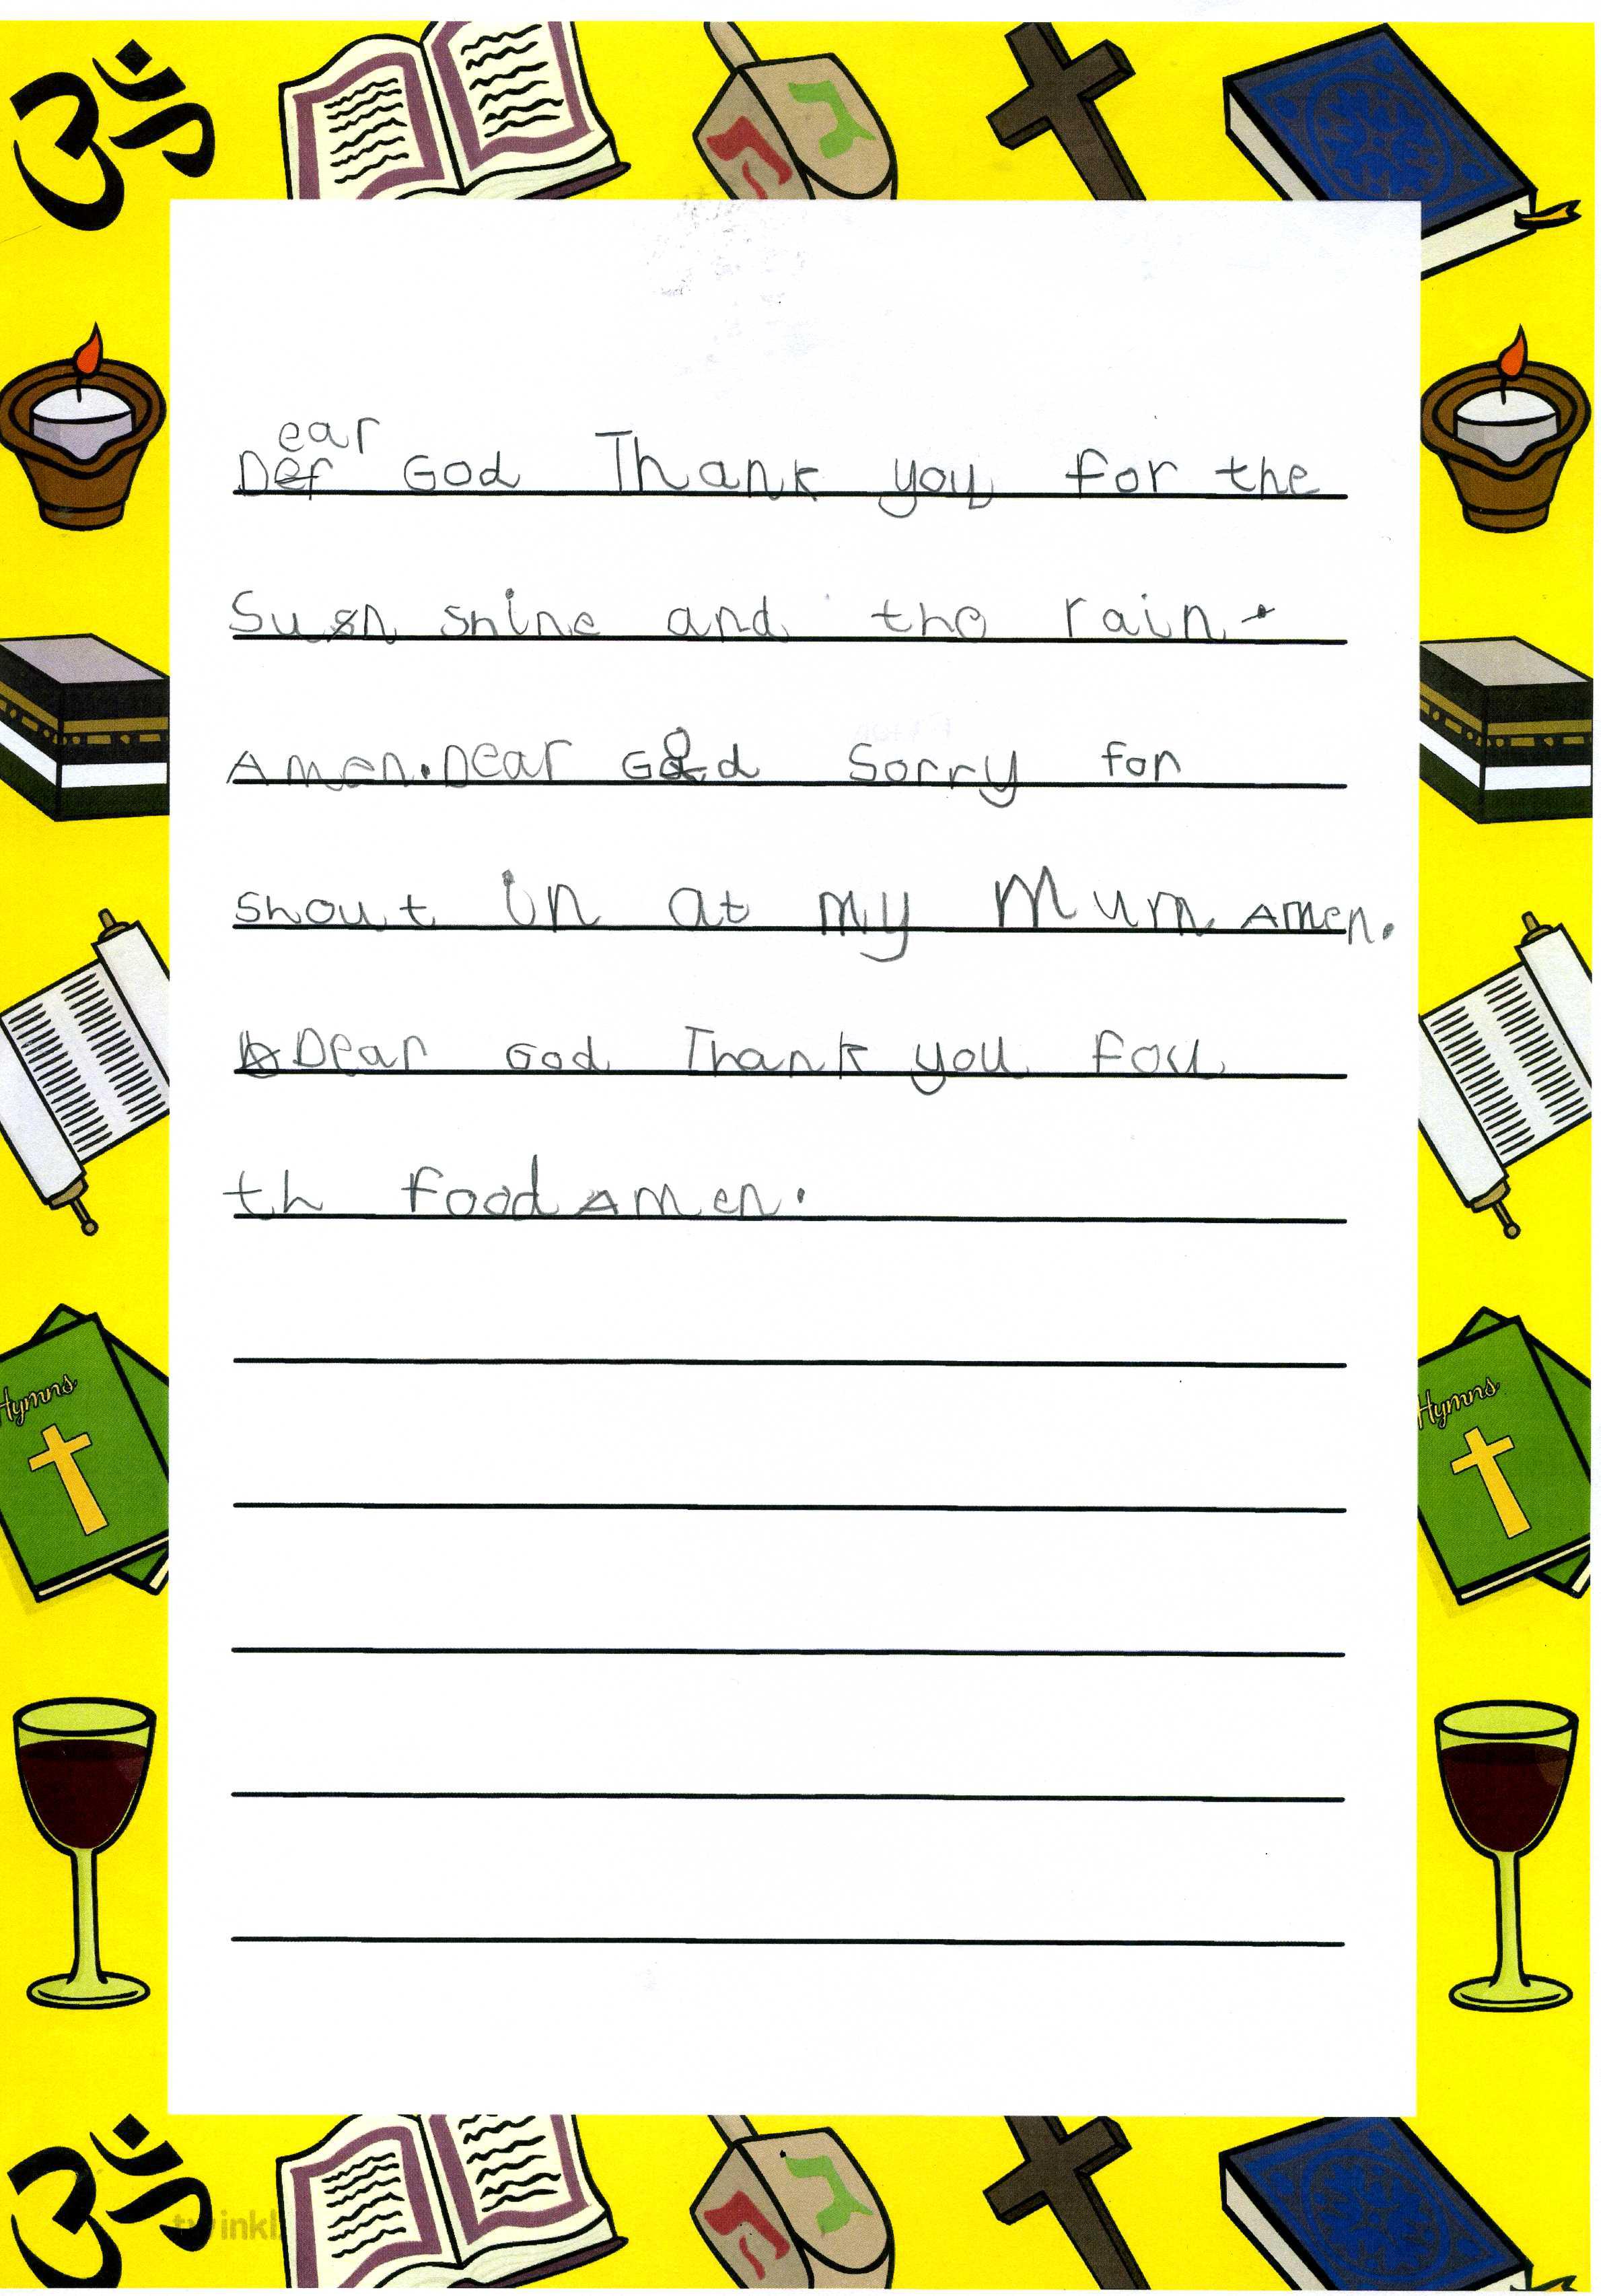 Dear God Thank you for the
Sun shine and the rain.
Amen. Dear God Sorry for
shout in at my Mum Amen.
Dear God Thank you fou
th food Amen.
Hymns
Hymns
twinkl